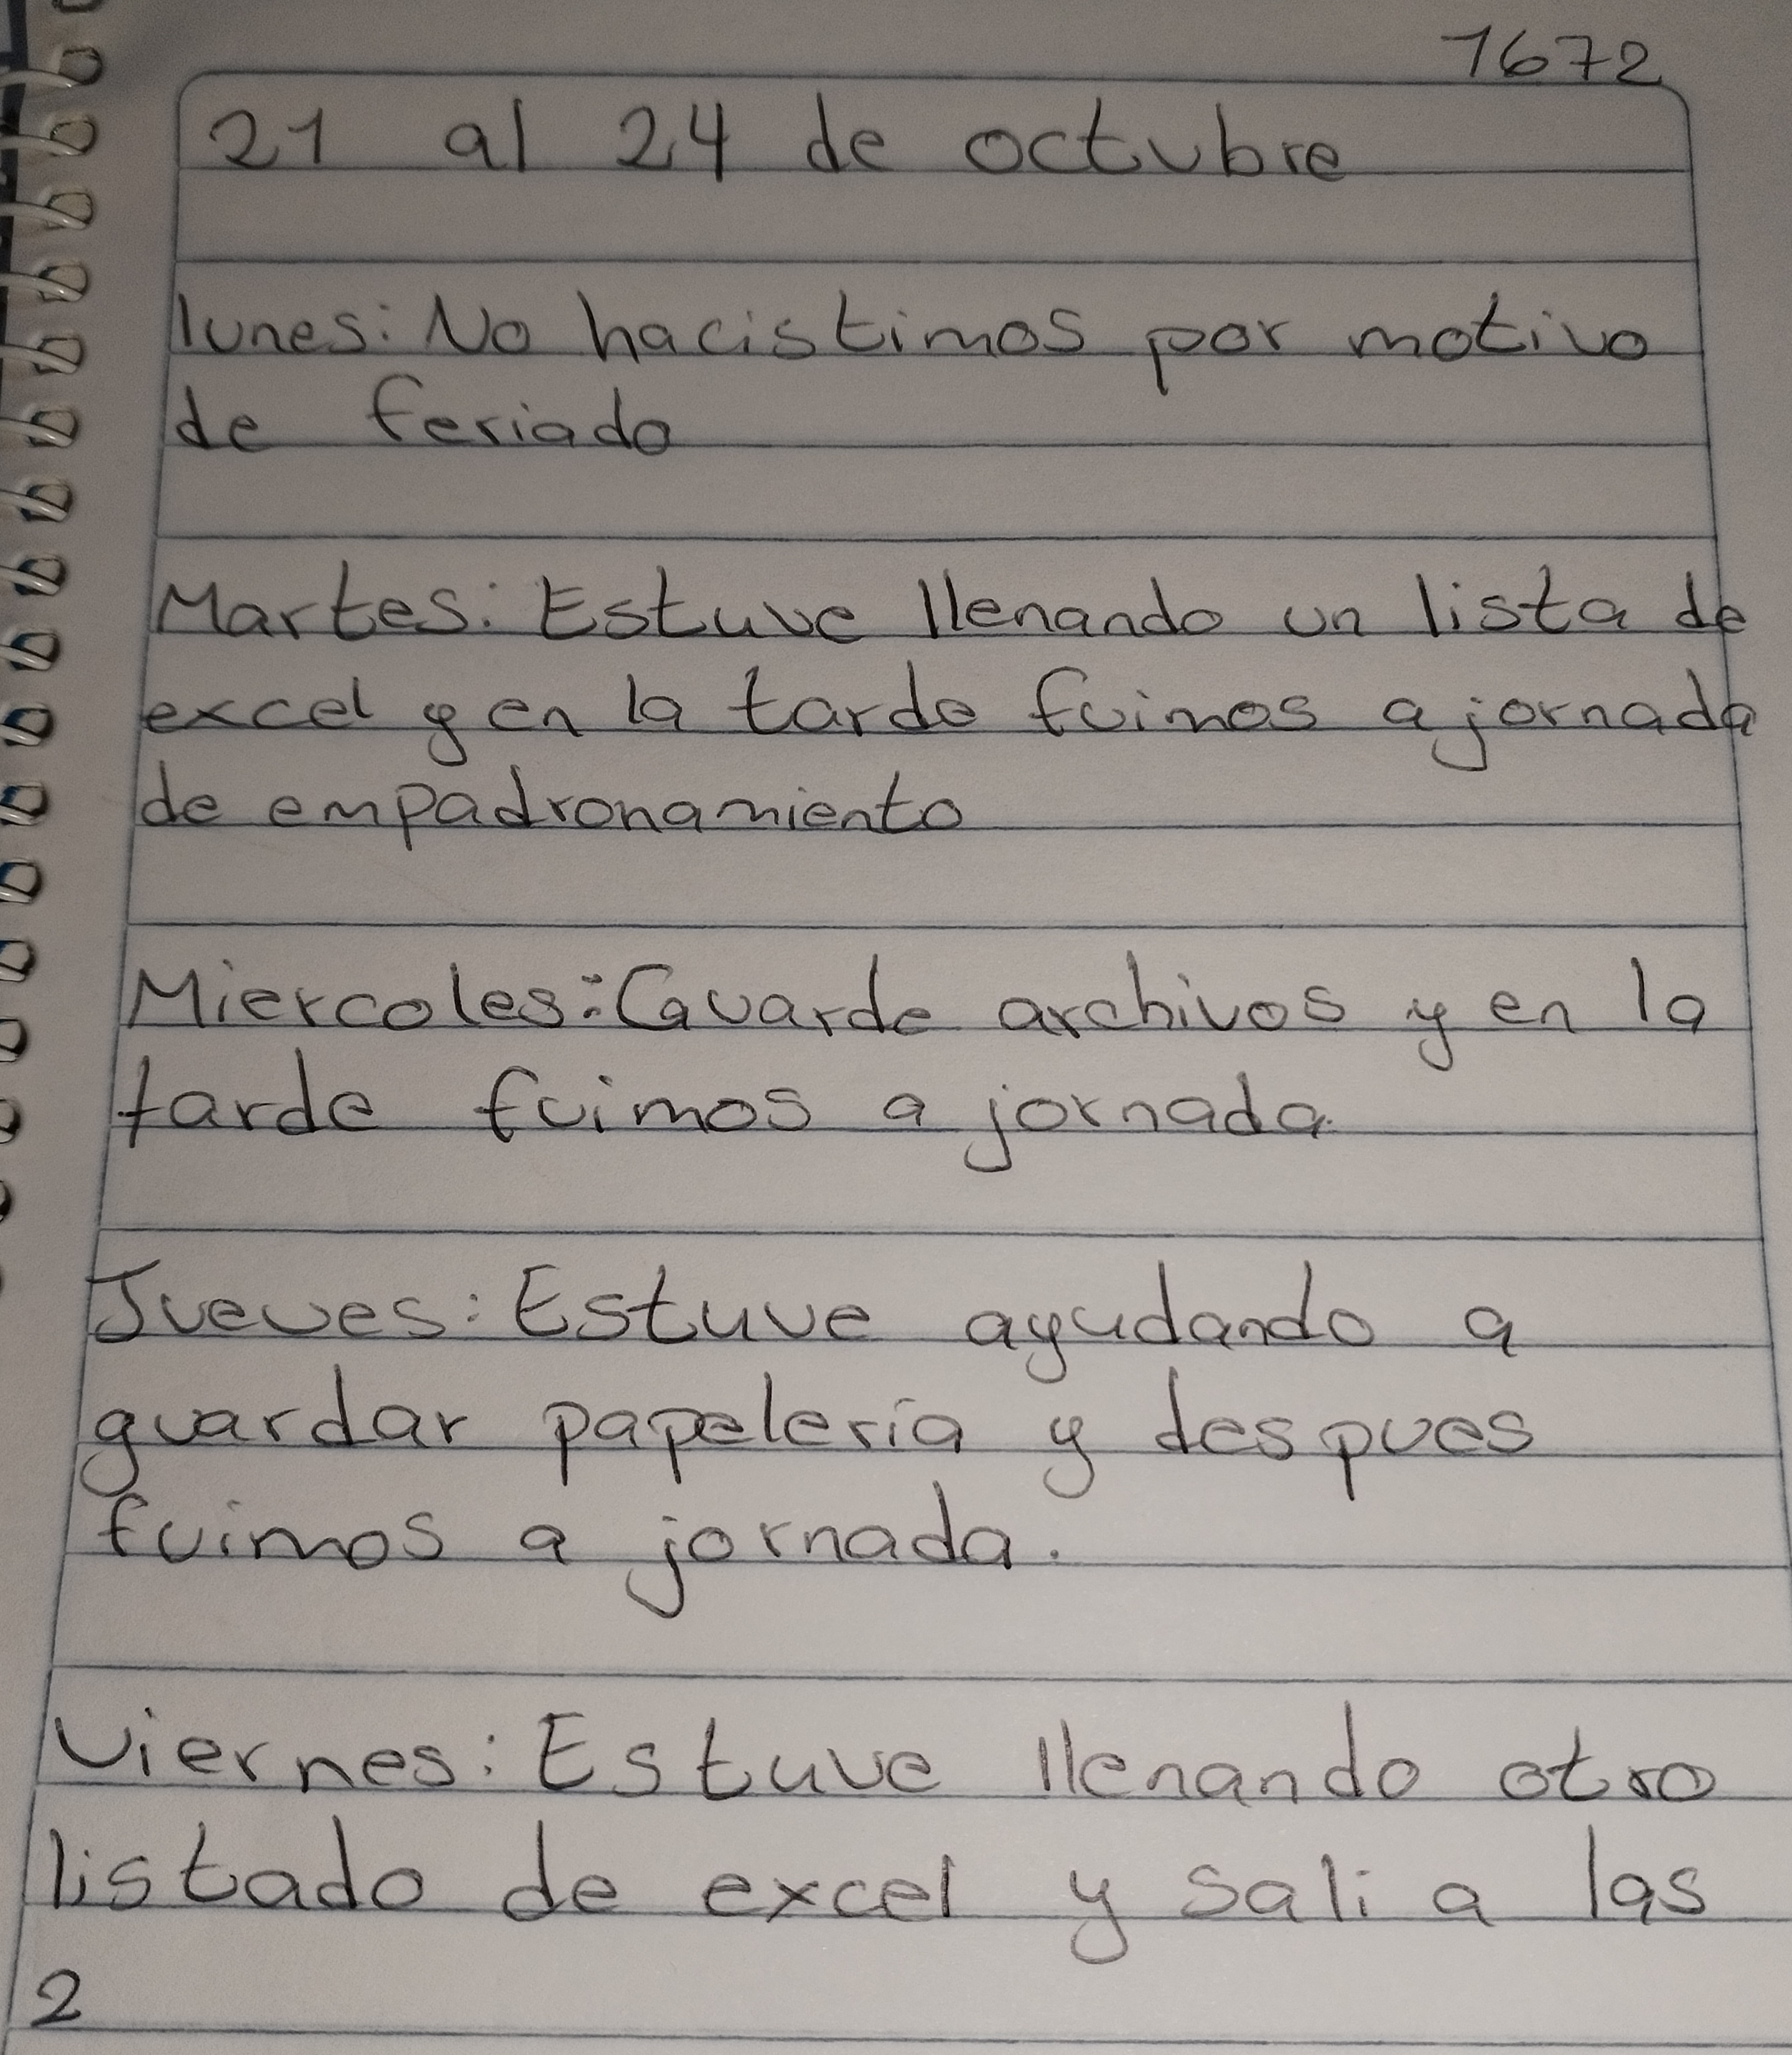 1672
21 al 24 de octubre
lunes: No hacistimos por motivo
de feriado
Martes: Estuve llenando un lista de
excel y en la tarde fuimos a jornada
de empadronamiento
Miercoles: Guarde archivos y en la
tarde fuimos a jornada.
Jueves: Estuve ayudando a
guardar papeleria y despues
fuimos a jornada.
Viernes: Estuve llenando otro
listado de excel y sali a las
2